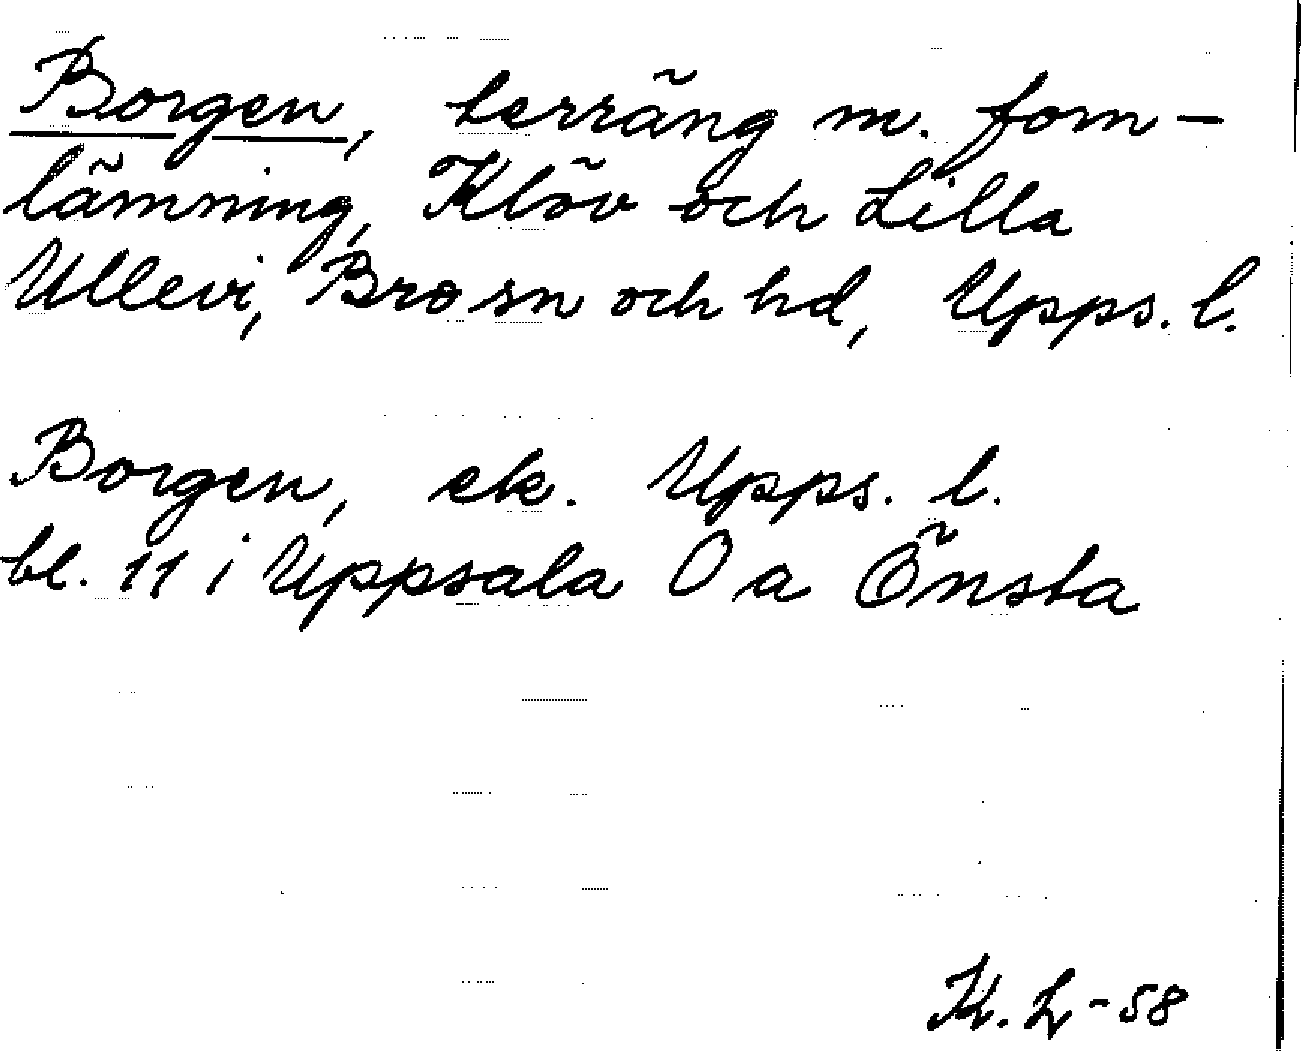 Borgen, terräng m. forn-
lämning, Klöv och Lilla
Ullevi, Bro sn och hd, Upps. l.
Borgen, ek. Upps. l.
bl. 11 i Uppsala O a Önsta
K. L-58